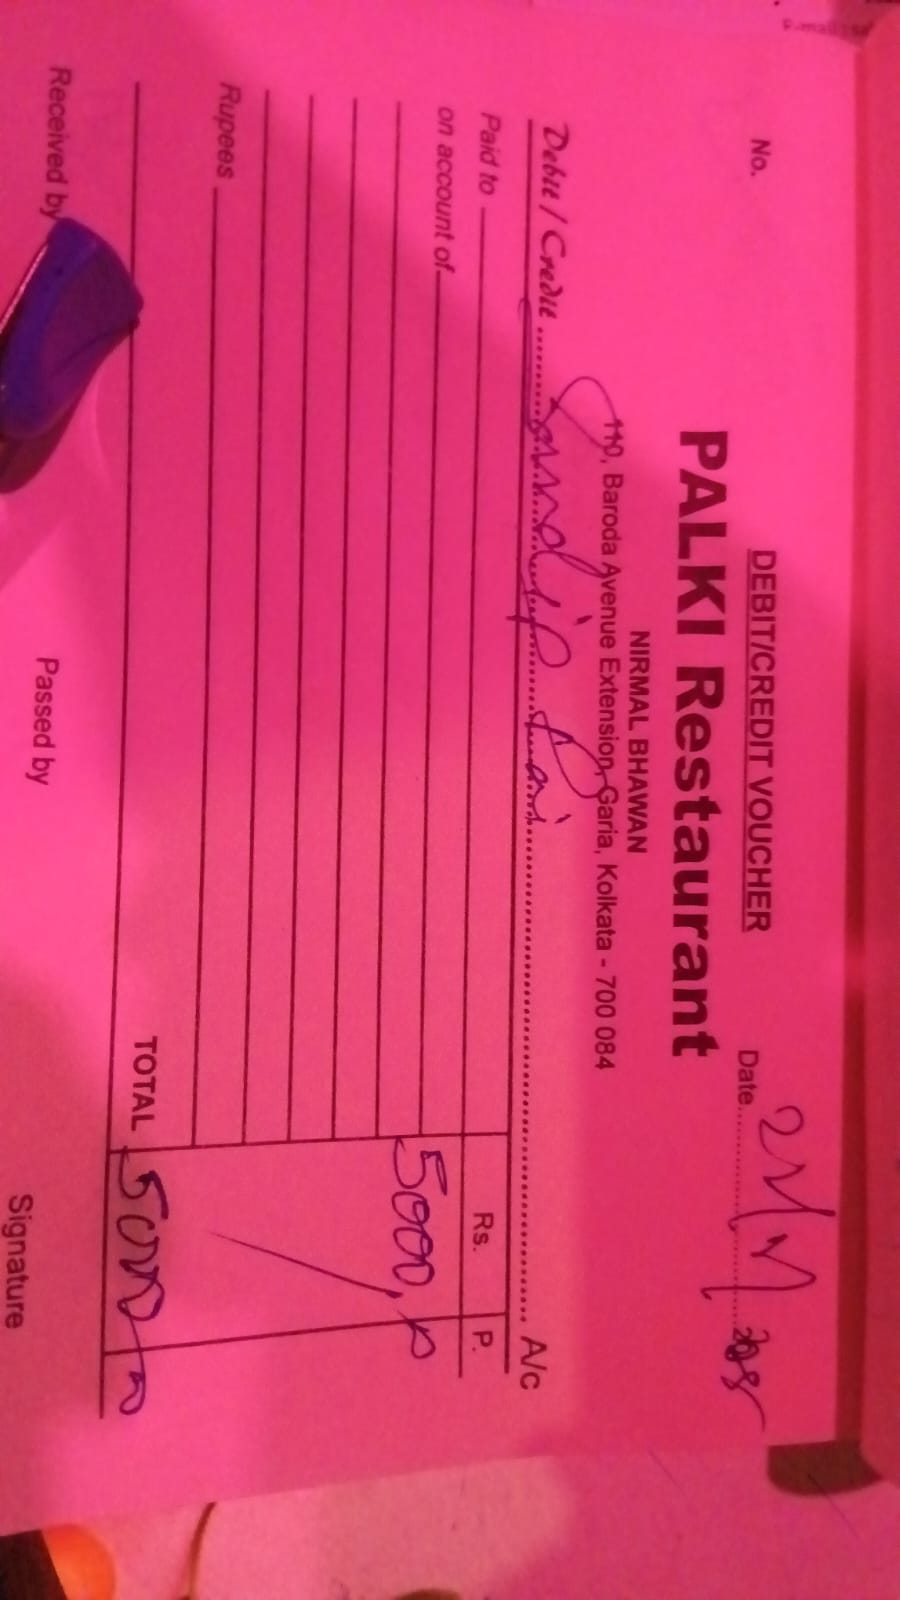 DEBIT/CREDIT VOUCHER
No. Date
PALKI Restaurant
NIRMAL BHAWAN
110, Baroda Avenue Extension, Garia, Kolkata - 700 084
Debit / Credit Sandip A/c
Paid to Rs. P.
on account of
5000,
Rupees
TOTAL 5000
Received by Passed by Signature